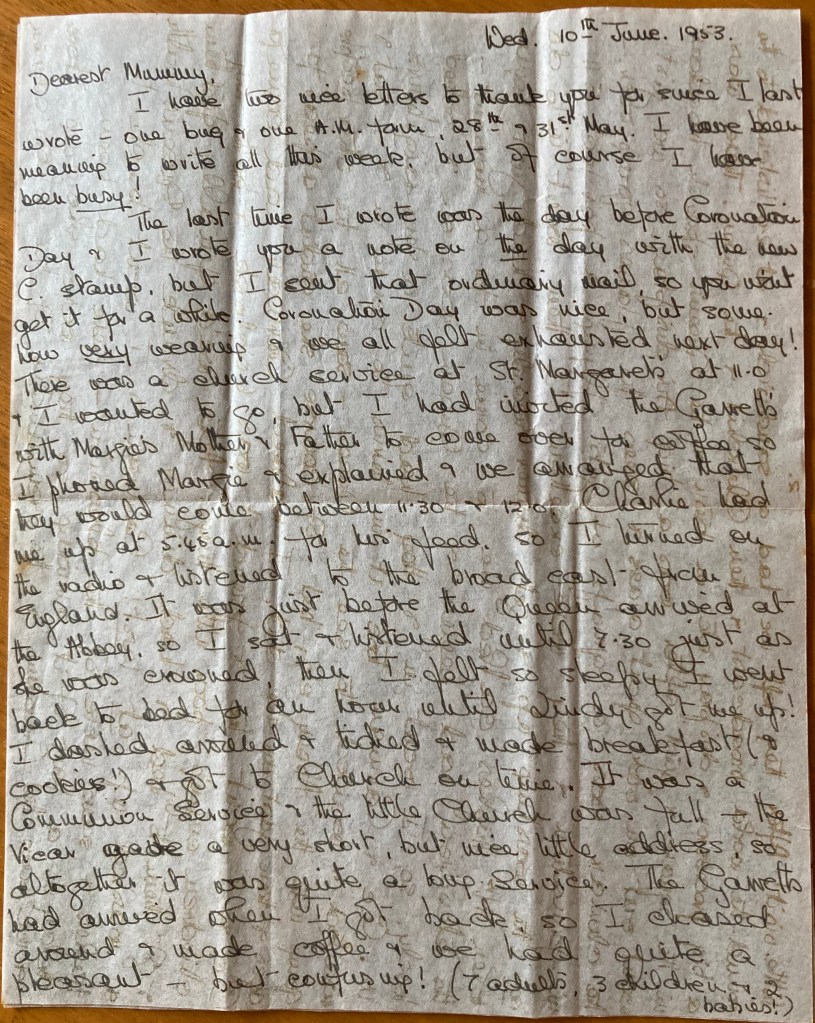 Wed. 10th June. 1953.
Dearest Mummy,
I have two nice letters to thank you for since I last
wrote – one bug & one A.M. form, 28th & 31st May. I have been
meaning to write all this week, but of course I have
been busy!
The last time I wrote was the day before Coronation
Day & I wrote you a note on the day with the new
C. stamp, but I sent that ordinary mail, so you wont
get it for a while. Coronation Day was nice, but some-
how very wearing & we all felt exhausted next day!
There was a church service at St. Margaret's at 11.0
& I wanted to go, but I had invited the Garretts
with Margie's Mother & Father to come over for coffee so
I phoned Margie & explained & we arranged that
they would come between 11.30 & 12.0. Charlie had
me up at 5.45 a.m. for his feed, so I turned on
the radio & listened to the broad cast from
England. It was just before the Queen arrived at
the Abbey, so I sat & listened until 7.30 just as
she was crowned, then I felt so sleepy I went
back to bed for an hour until Lindy got me up!
I dashed around & tidied & made breakfast (&
cookies!) & got to Church on time. It was a
Communion Service & the little Church was full – the
Vicar gave a very short, but nice little address, so
altogether it was quite a long service. The Garretts
had arrived when I got back, so I chased
around & made coffee & we had quite a
pleasant – but confusing! (7 adults, 3 children & 2
babies!)